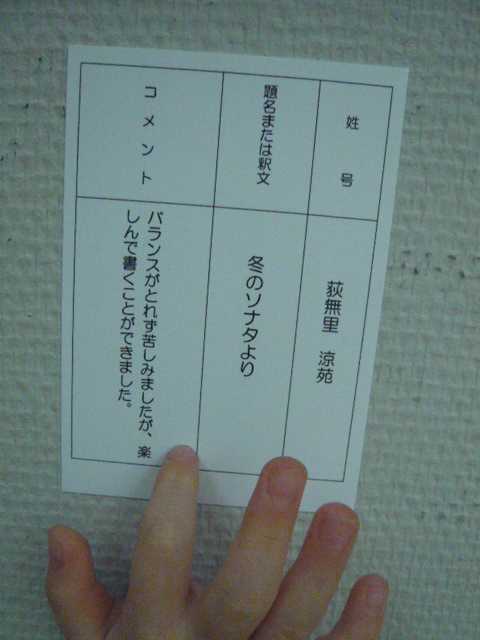 姓号
荻無里 涼苑
題名または釈文
冬のソナタより
コメント
バランスがとれず苦しみましたが、楽
しんで書くことができました。